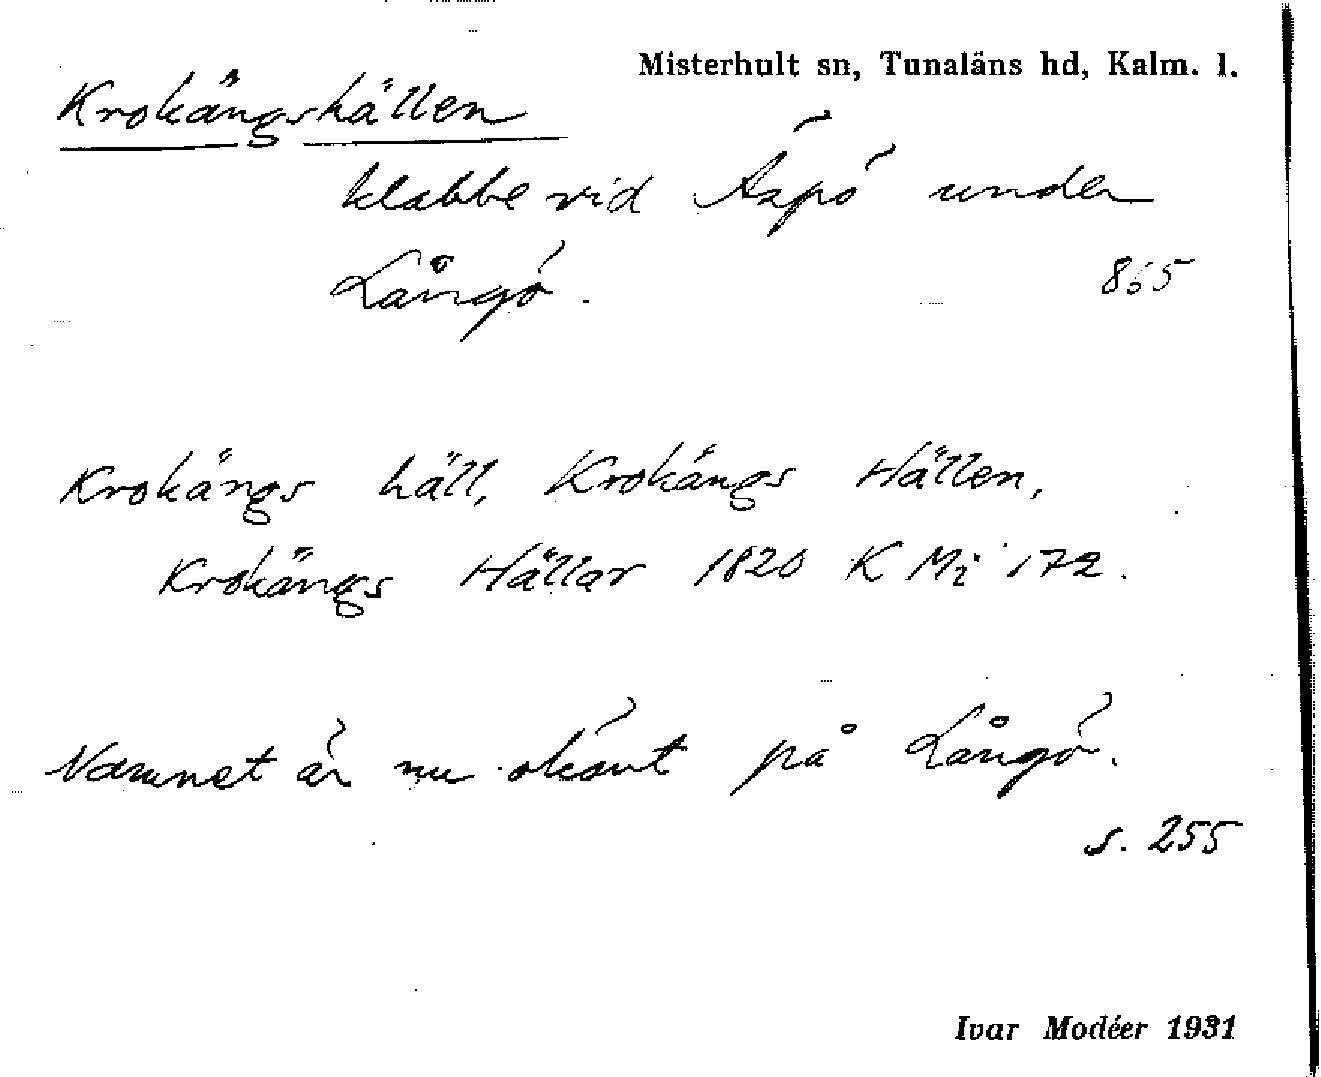 Misterhult sn, Tunaläns hd, Kalm. l.
Krokängshällen
klabbe vid Äspö under
Långö.
865
Krokängs häll, Krokängs Hällen,
Krokängs Hällar 1820 K Mi 172.
Namnet är nu okänt på Långö.
s. 255
Ivar Modéer 1931